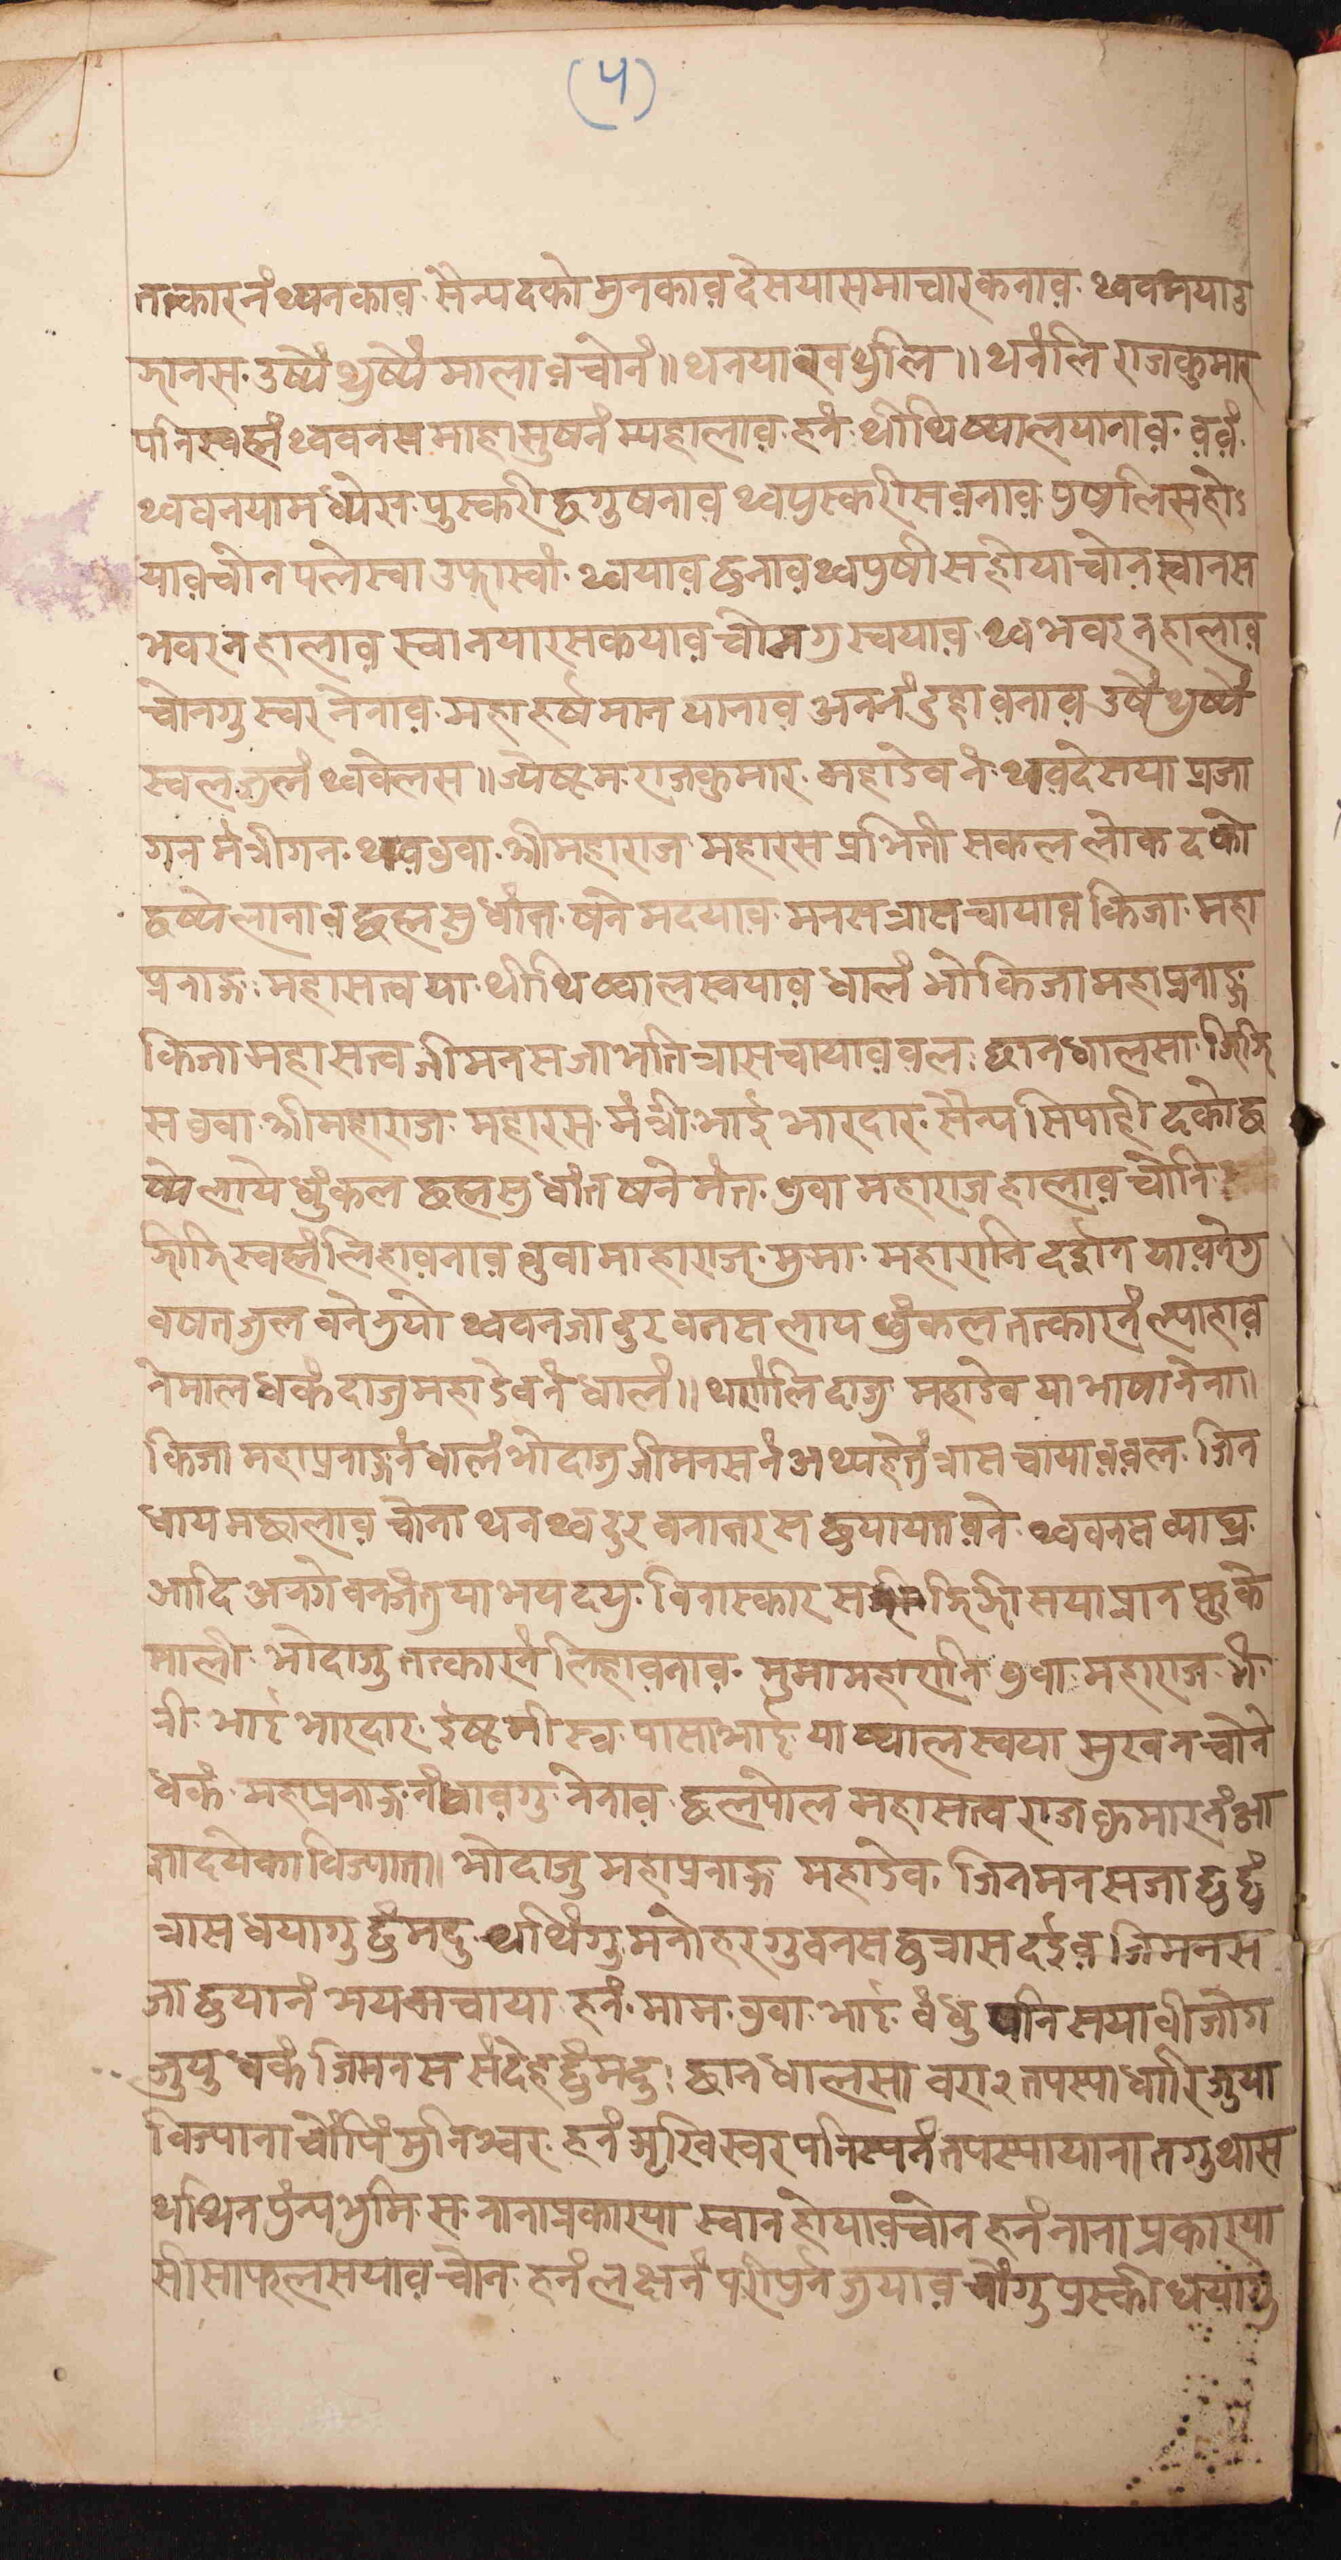 (५)
तत्कारनं थ्यनकाव सैन्य दको मुनकाव देसया समाचार कनाव थ्ववनया उ
झानस उष्यें थुष्यें मालाव चोनं॥ थनया खँ थुलि॥ थनंलि राजकुमार
पनि स्वह्मं थ्ववनस माहासुषनं म्यहालाव हनं थीथि ष्यालयानाव वंवं
थ्ववनया मध्येस पुस्करी छगु षनाव थ्व पुस्करीस वनाव पुषुलिस हो
याव चोन पलेस्वा उफास्वां थ्वयाव छुनाव थ्व पुषीस होया चोन स्वानस
भवरन हालाव स्वानया रस कयाव चोनगु स्वयाव थ्व भवरन हालाव
चोनगु स्वर नेनाव महाहर्षमान यानाव अननं दुहा वनाव उषें थुष्यें
स्वल जुलं थ्ववेलस॥ ज्येष्टम राजकुमार महादेवनं थव देसया प्रजा
गन मंत्रीगन थव वुवा श्रीमहाराज महारस प्रभिती सकल लोक दको
छष्ये लानाव छह्म सु धांत षने मदयाव मनस त्रास चायाव किजा महा
प्रनाद महासत्वया थीथि ष्वाल स्वयाव धालं भो किजा महाप्रनाद
किजा महासत्व जीमनस जा अति त्रास चायाव वल छान धालसा झिझि
स वुवा श्रीमहाराज महारस मंत्री भाई भारदार सैन्य सिपाही दको छ
ष्ये लाये धुंकल छह्म सु धांत षने मंत वुवा महाराज हालाव चोनि
झिझि स्वह्मं लिहा वनाव वुवा माहाराज मुमा महारानि दर्शन यावनेगु
वषत जुल वने नुयो थ्ववन जा दुर वनस लाय धुंकल तत्कारनं ल्याहाव
नेमाल धकं दाजु महादेवनं धालं॥ थनंलि दाजु महादेवया भाषा नेना॥
किजा महाप्रनादनं धालं भो दाजु जीमनसनं अथ्यहेतुं त्रास चायाव वल जिन
धाय मछालाव चोना थन थ्व दुर वनान्तरस छुयायत वने थ्ववनस व्याघ्र
आदि अनेग वनजंतुया भय दयु विनास्कारस झिझिसया प्रान फुके
माली भो दाजु तत्कारनं लिहा वनाव मुमा महारानि वुवा महाराज मं
त्री भाई भारदार ईष्टमीस्त्र पासाभाईया ष्याल स्वया सुखन चोने
धकं महाप्रनादनं धावगु नेनाव छलपोल महासत्व राजकुमारनं आ
ज्ञा दयेका विज्यात॥ भो दाजु महाप्रनाद महादेव जितमनस जा छुछुं
त्रास धयागु छुं मदु थथिंगु मनोहरगु वनस छु त्रास दईव जिमनस
जा छुयानं भय मचाया हनं माम वुवा भाई वंधु पनिसया वीजोग
जुयु धकं जिमनस संदेह छुं मदु छान धालसा वरा२ तपस्या धारि जुया
विज्याना चोंपिं मुनिश्वर हनं ऋखिस्वर पनिस्यनं तपस्या याना तगु थास
थथिन पुंन्य भुमिस नाना प्रकारया स्वान होयाव चोन हनं नाना प्रकारया
सीसाफल सयाव चोन हनं लक्षनं परीपुर्न जुयाव चोंगु पुस्करी धयागु